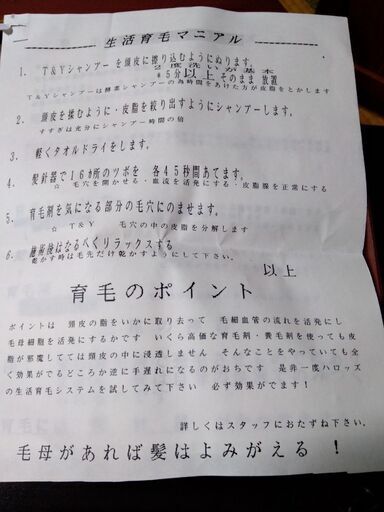 生活育毛マニアル
1. T&Yシャンプーを頭皮に擦り込むようにぬります。
2度洗いが基本
*5分以上そのまま放置
T&Yシャンプーは酵素シャンプーの為時間をあけた方が皮脂をとかします
2. 頭皮を揉むように・皮脂を絞り出すようにシャンプーします。
すすぎは充分にシャンプー時間の倍
3. 軽くタオルドライをします。
4. 髪針器で16ヵ所のツボを 各45秒間あてます。
☆ 毛穴を開かせる・血流を活発にする・皮脂腺を正常にする
5. 育毛剤を気になる部分の毛穴にのませます。
☆ T&Y 毛穴の中の皮脂を分解します
6. 施術後はなるべくリラックスする
乾かす時は毛先だけ乾かすようにして下さい。
以上
育毛のポイント
ポイントは 頭皮の脂をいかに取り去って 毛細血管の流れを活発にし
毛母細胞を活発にするかです いくら高価な育毛剤・養毛剤を使っても皮
脂が邪魔してては頭皮の中に浸透しません そんなことをやっていても全
く効果がでるどころか逆に手遅れになるのがおちです 是非一度ハロッズ
の生活育毛システムを試してみて下さい 必ず効果がでます!
詳しくはスタッフにおたずね下さい。
毛母があれば髪はよみがえる !